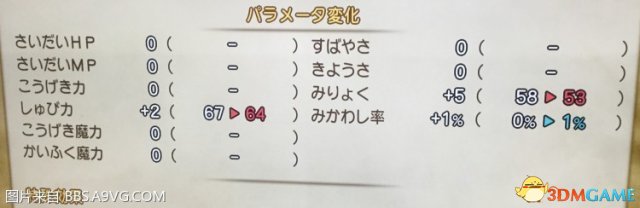 パラメータ変化
さいだいHP 0 ( － )
さいだいMP 0 ( － )
こうげき力 0 ( － )
しゅび力 +2 ( 67 ▶ 64 )
こうげき魔力 0 ( － )
かいふく魔力 0 ( － )
すばやさ 0 ( － )
きようさ 0 ( － )
みりょく +5 ( 58 ▶ 53 )
みかわし率 +1% ( 0% ▶ 1% )
图片来自:BBS.A9VG.COM
3DMGAME